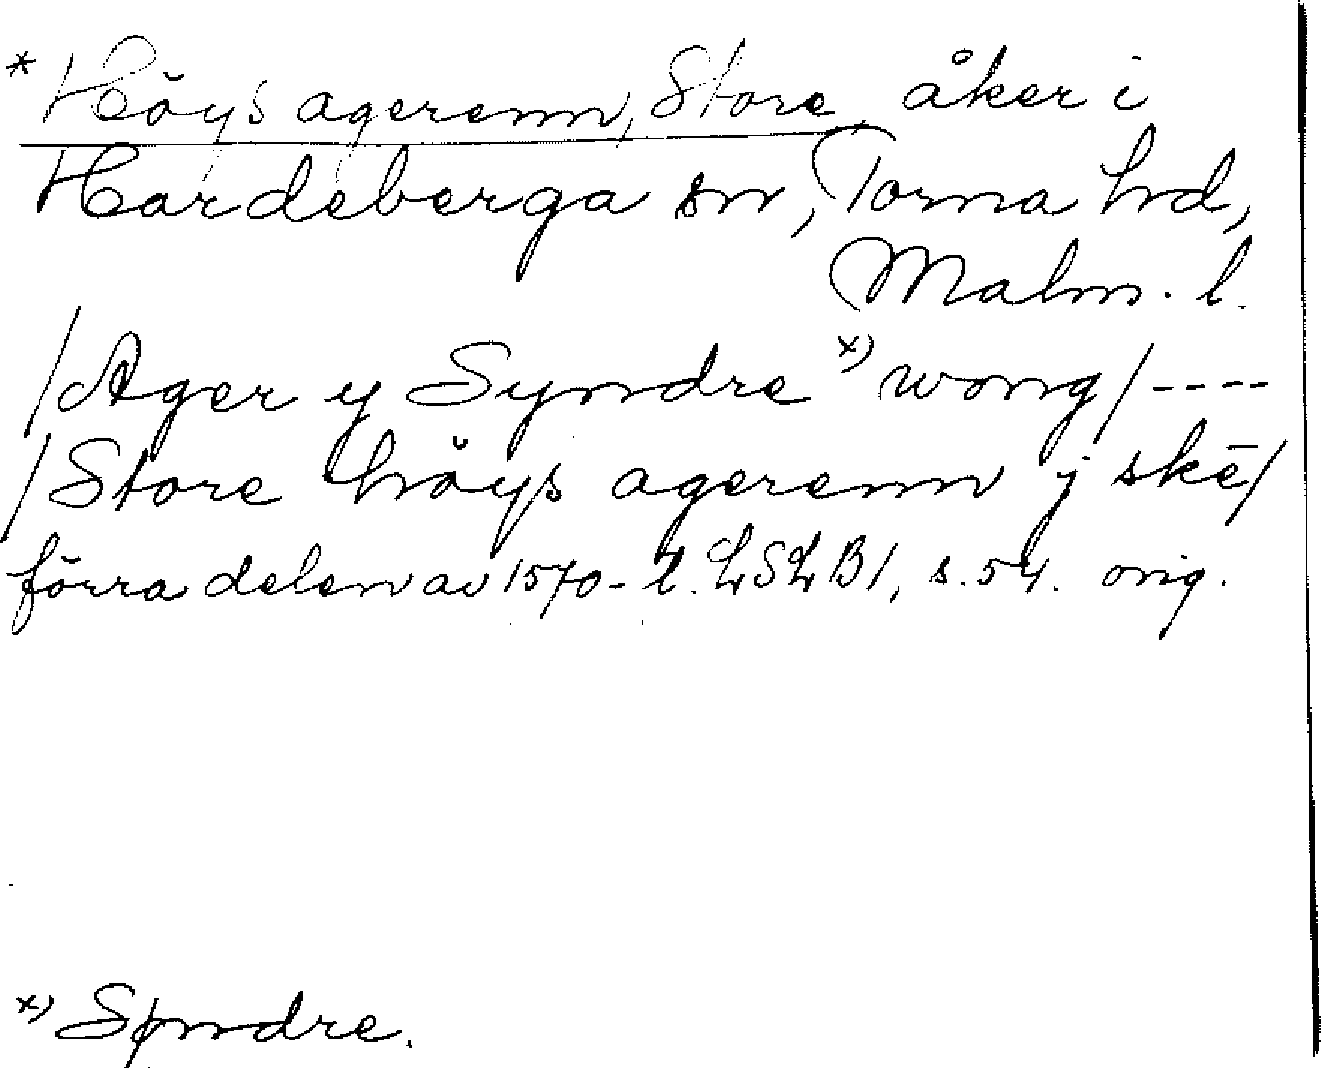 * Höys agerenn, Store, åker i
Hardeberga sn, Torna hd,
Malm. l.
/Ager y Syndre x) wong/----
/Store höys agerenn j skē/
förra delen av 1570-t. LSLB1, s.54. orig.
x) Søndre.